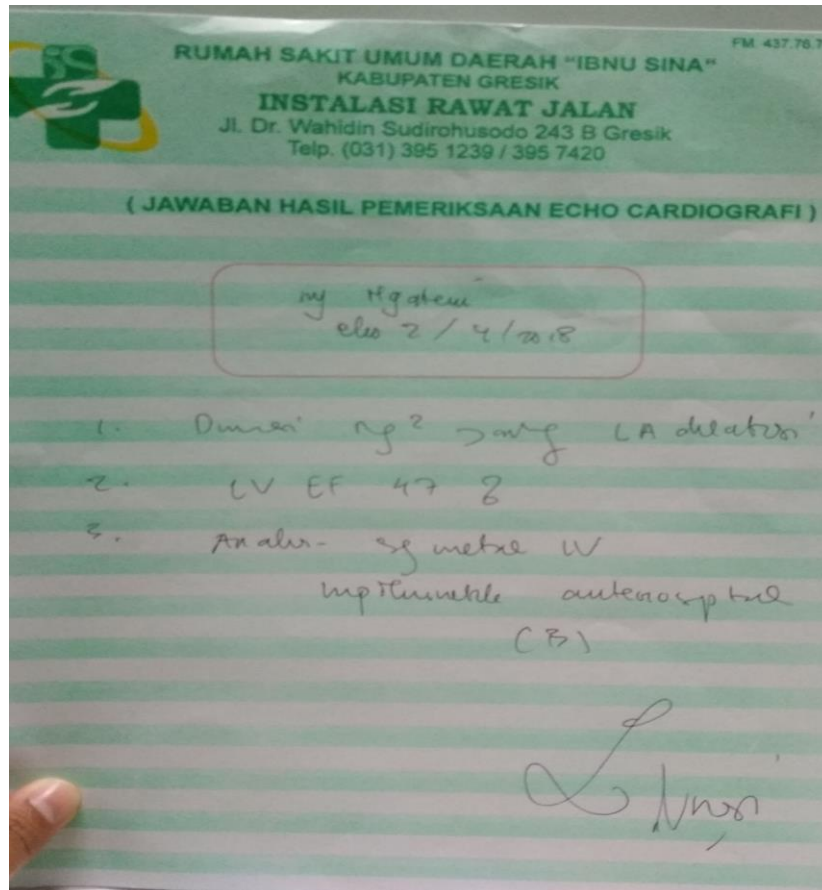 FM. 437.76.7
RUMAH SAKIT UMUM DAERAH "IBNU SINA"
KABUPATEN GRESIK
INSTALASI RAWAT JALAN
Jl. Dr. Wahidin Sudirohusodo 243 B Gresik
Telp. (031) 395 1239 / 395 7420
( JAWABAN HASIL PEMERIKSAAN ECHO CARDIOGRAFI )
ny Ngatemi
2 / 4 / 2018
1. LA dilatasi
2. LV EF 47 %
3. Analisa segmental LV
anteroseptal
(B)